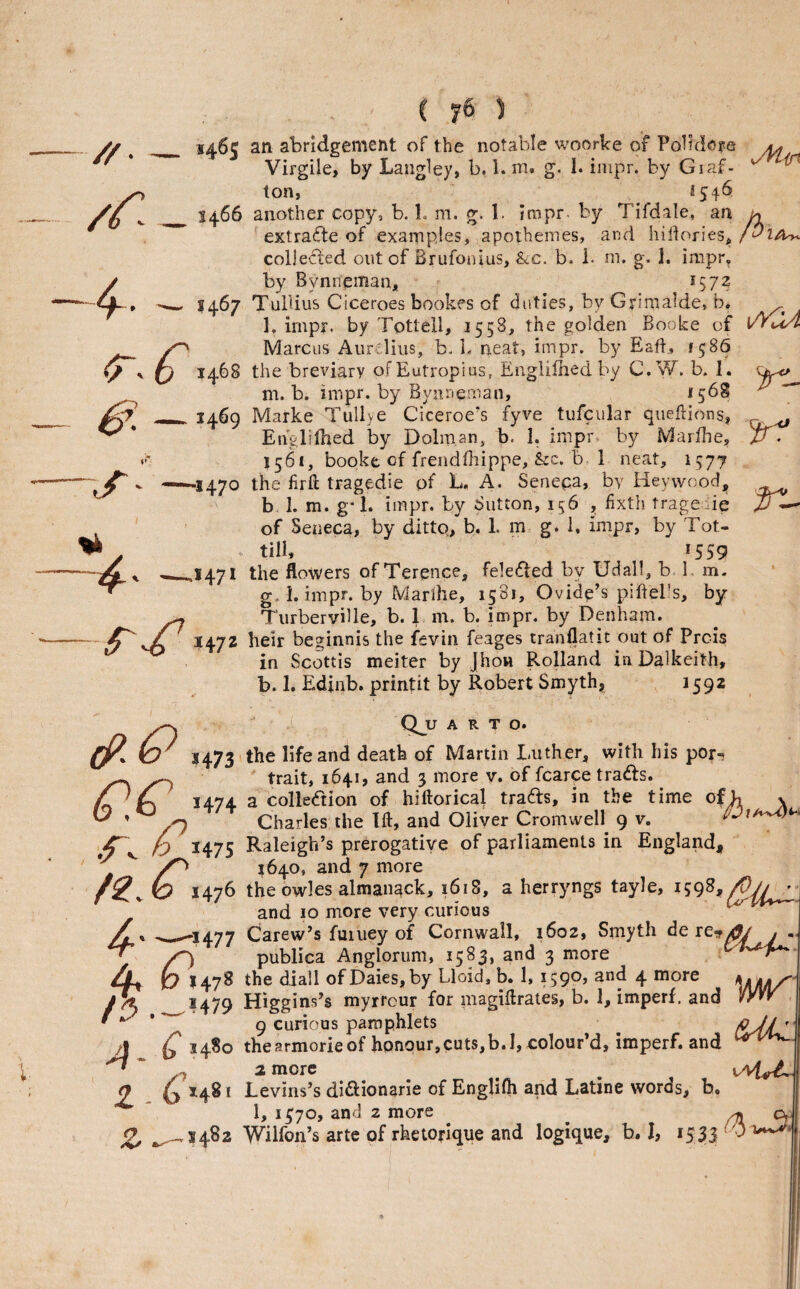 ( 76 )
11. — 1465 an abridgement of the notable woorke of Polidore
Virgile, by Langley, b. l. m. g. l. impr. by Graf-
ton, 1546
16. — 1466 another copy, b. l. m. g. l. impr. by Tiſdale, an
extracte of examples, apothemes, and hiſtories,
collected out of Bruſonius, &c. b. l. m. g. l. impr.
by Bynneman, 1572
4. — 1467 Tullius Ciceroes bookes of duties, by Grimalde, b.
l. impr. by Tottell, 1558, the golden Booke of
Marcus Aurelius, b. l. neat, impr. by Eaſt, 1586
1468 the breviary of Eutropius, Engliſhed by C. W. b. l.
m. b. impr. by Bynneman, 1568
6. — 1469 Marke Tullye Ciceroe's fyve tuſcular queſtions,
Engliſhed by Dolman, b. l. impr. by Marſhe,
1561, booke of frendſhippe, &c. b. l neat, 1577
5. — 1470 the firſt tragedie of L. A. Seneca, by Heywood,
b. l. m. g. l. impr. by Sutton, 156 , ſixth tragedie
of Seneca, by ditto, b. l. m g. l. impr, by Tot-
till, 1559
4. — 1471 the flowers of Terence, ſelected by Udall, b. l. m.
g. l. impr. by Marſhe, 1581, Ovide's piſtel's, by
Turberville, b. l m. b. impr. by Denham.
5.6 1472 heir beginnis the ſevin ſeages tranſlatit out of Prois
in Scottis meiter by Jhon Rolland in Dalkeith,
b. l. Edinb. printit by Robert Smyth, 1592
QUARTO.
1473 the life and death of Martin Luther, with his por-
trait, 1641, and 3 more v. of ſcarce tracts.
1474 a collection of hiſtorical tracts, in the time of
Charles the Iſt, and Oliver Cromwell 9 v.
5.6 1475 Raleigh's prerogative of parliaments in England,
1640, and 7 more
12.6 1476 the owles almanack, 1618, a herryngs tayle, 1598,
and 10 more very curious
4. — 1477 Carew's ſuruey of Cornwall, 1602, Smyth de re-
publica Anglorum, 1583, and 3 more
4.6 1478 the diall of Daies, by Lloid, b. l, 1590, and 4 more
13. — 1479 Higgins's myrrour for magiſtrates, b. l, imperf. and
9 curious pamphlets
4.6 1480 the armorie of honour, cuts, b. l, colour'd, imperf. and
2 more
2.6 1481 Levins's dictionarie of Engliſh and Latine words, b.
l, 1570, and 2 more
2. — 1482 Wilſon's arte of rhetorique and logique, b. l, 1533